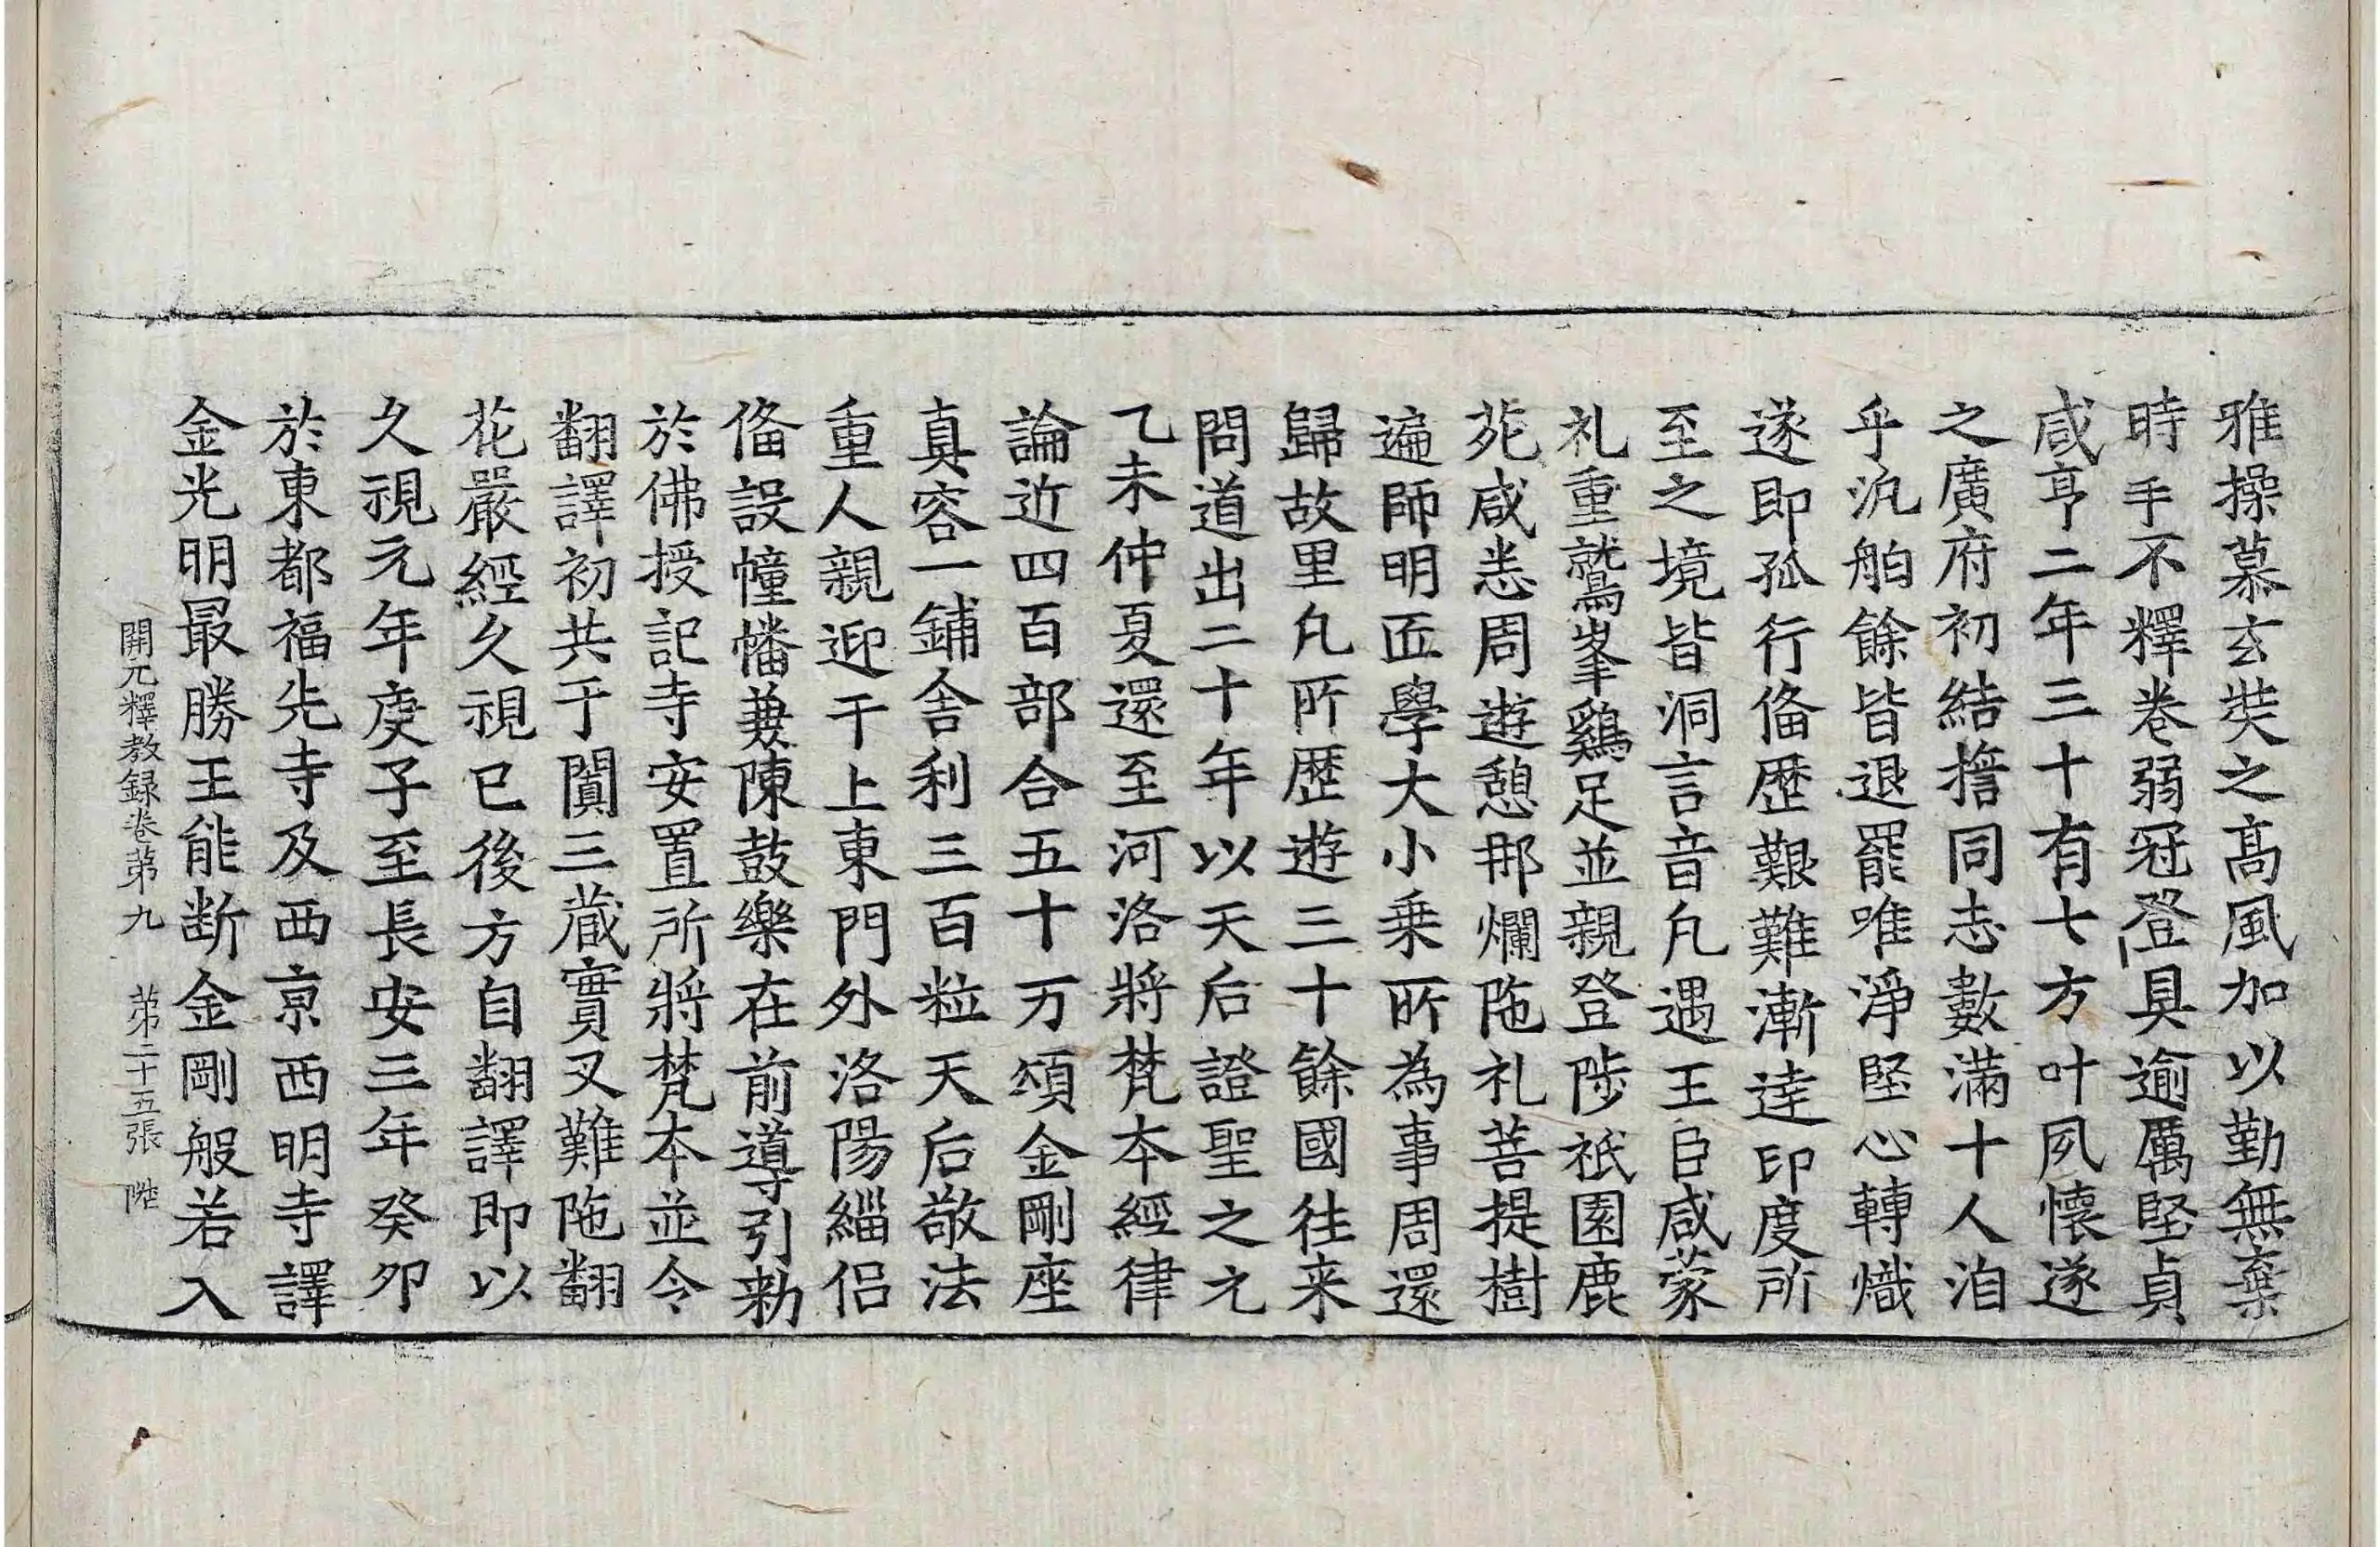 雅操慕玄奘之髙風加以勤無棄
時手不釋卷弱冠登具逾厲堅貞
咸亨二年三十有七方叶夙懷遂
之廣府初結擔同志數滿十人洎
乎汎舶餘皆退罷唯淨堅心轉熾
遂即孤行俻歷艱難漸達印度所
至之境皆洞言音凡遇王臣咸蒙
礼重鷲峯鷄足並親登陟祇園鹿
苑咸悉周遊憩那爛陁礼菩提樹
遍師明匠學大小乗所為事周還
歸故里凡所歴遊三十餘國徃来
問道出二十年以天后證聖之元
乙未仲夏還至河洛將梵本經律
論近四百部合五十万頌金剛座
真容一鋪舎利三百粒天后敬法
重人親迎于上東門外洛陽緇侣
俻設幢幡兼陳鼓樂在前導引勑
於佛授記寺安置所將梵本並令
翻譯初共于闐三蔵實叉難陁翻
花嚴經久視已後方自翻譯即以
久視元年庚子至長安三年癸夘
於東都福先寺及西京西明寺譯
金光明最勝王能断金剛般若入
開元釋教録卷苐九　苐二十五張　陞